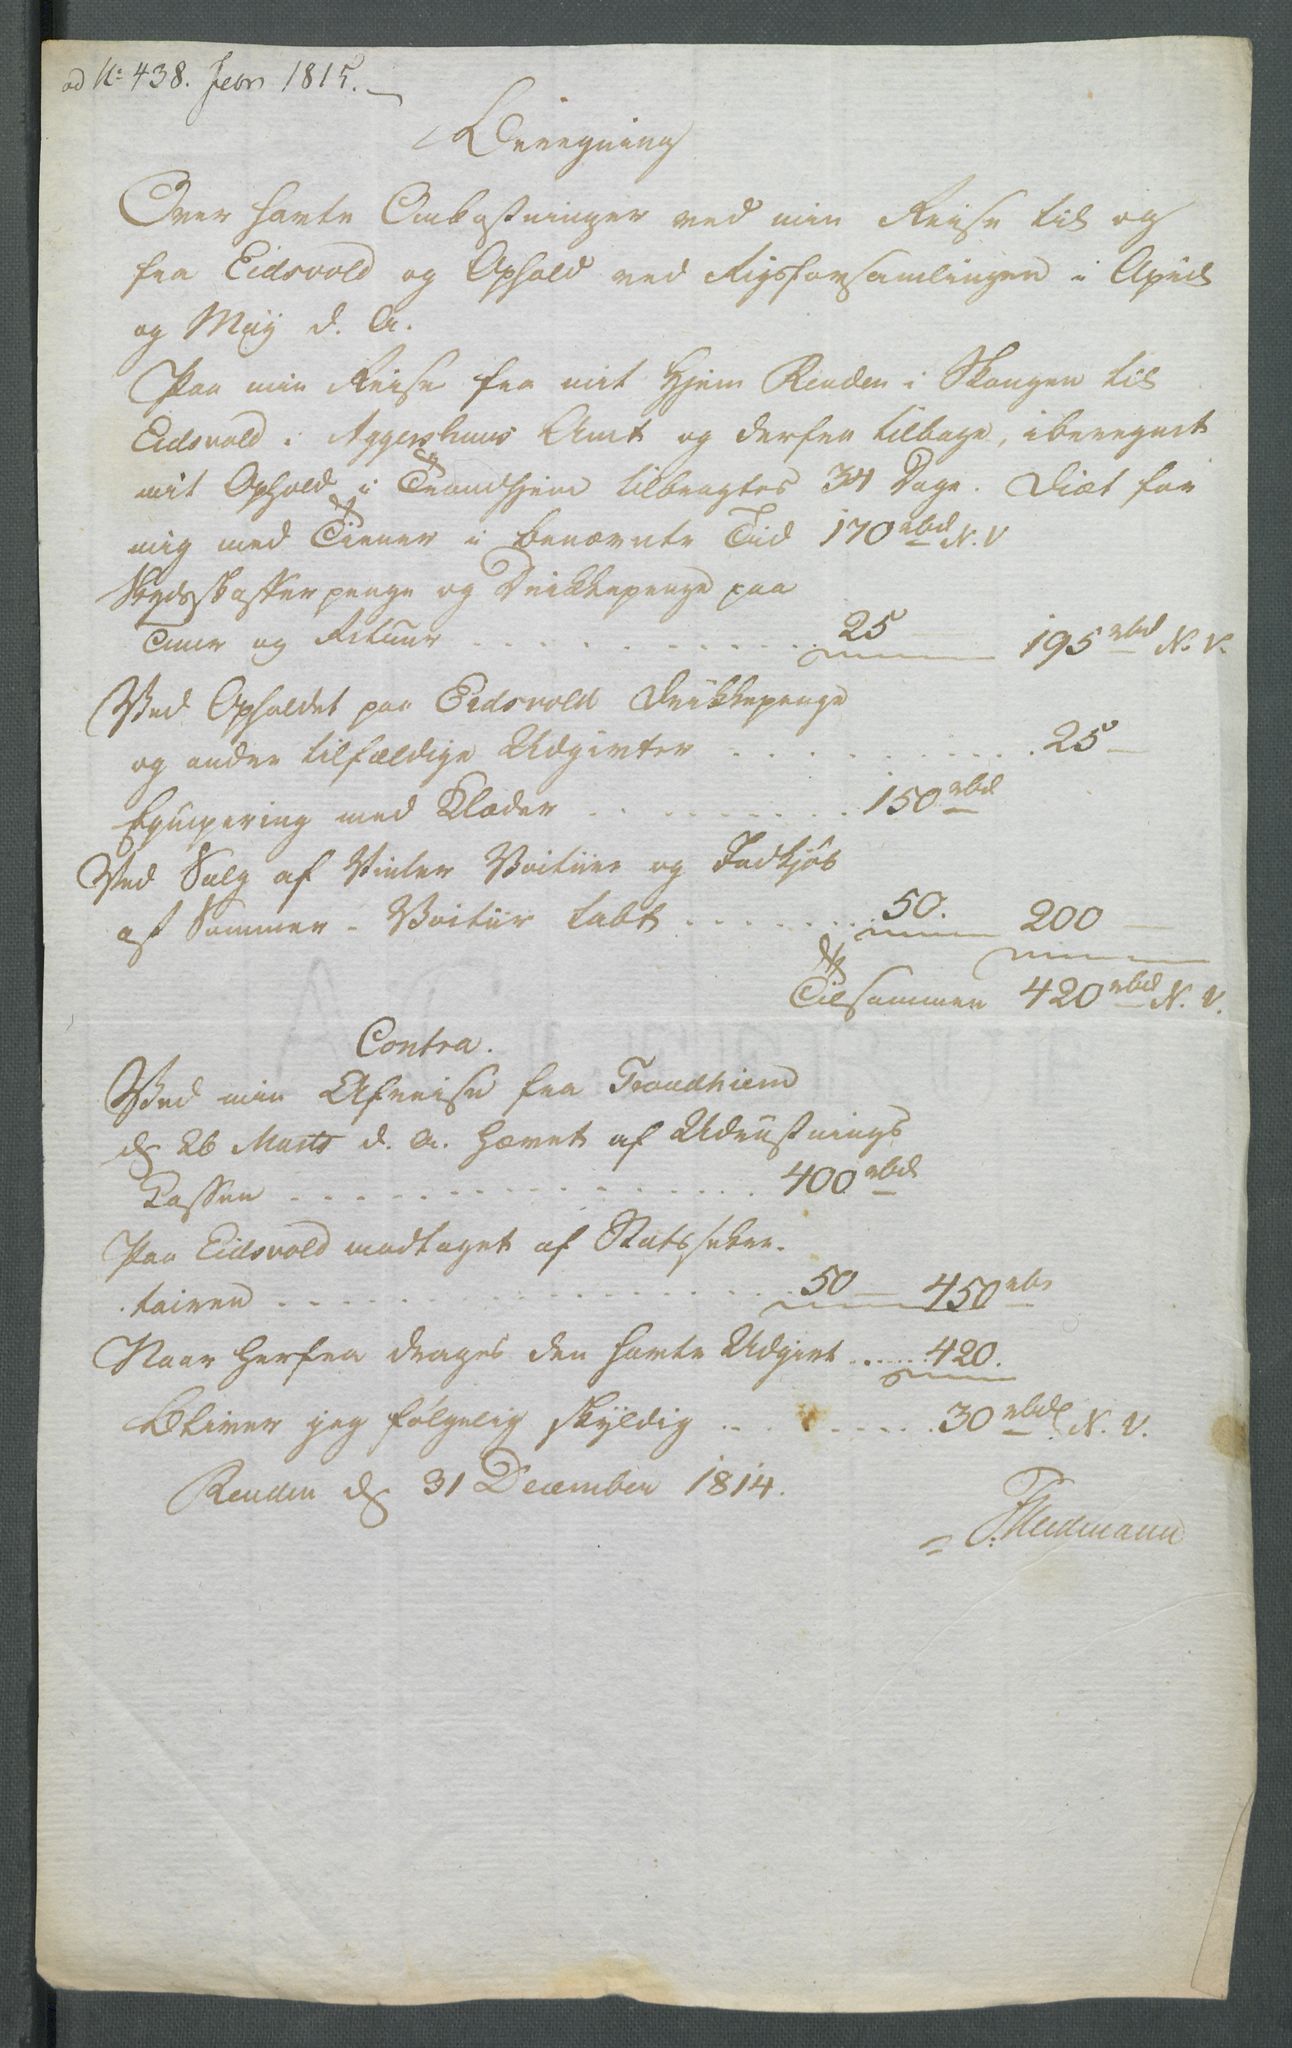 ad No 438. Febr 1815.
Beregning
Over havte Omkostninger ved min Reise til og
fra Eidsvold og Ophold ved Rigsforsamlingen i April
og May d. A.
Paa min Reise fra mit Hjem Renden i Stangen til
Eidsvold i Aggershuus Amt og derfra tilbage, iberegnet
mit Ophold i Trondhjem tilbragtes 34 Dage. Diæt for
mig med Tiener i benævnte Tid 170 rbd N. V
Skydsskafferpenge og Drikkepenge paa
Tuur og Retuur . . . . . . . . . . . . 25 195 rbd N. V.
Ved Opholdet paa Eidsvold Drikkepenge
og andre tilfældige Udgivter . . . . . . . . . 25 —
Equipering med Klæder . . . . . . . . . 150 rbd
Ved Salg af Vinter Voiture og Indkjøb
af Sommer - Voitür tabt . . . . . . . 50. 200 —
Tilsammen 420 rbd N. V.
Contra.
Ved min Afreise fra Trondhiem
d. 26 Marts d. A. hævet af Udrustnings
Kassen . . . . . . . . . . . . . . . . . 400 rbd
Paa Eidsvold modtaget af Statssekre-
tairen . . . . . . . . . . . . . . . . . 50 — 450 rbd
Naar herfra drages den havte Udgivt . . . . . 420.
bliver jeg følgelig skyldig . . . . . . . . 30 rbd N. V.
Renden d. 31 December 1814.